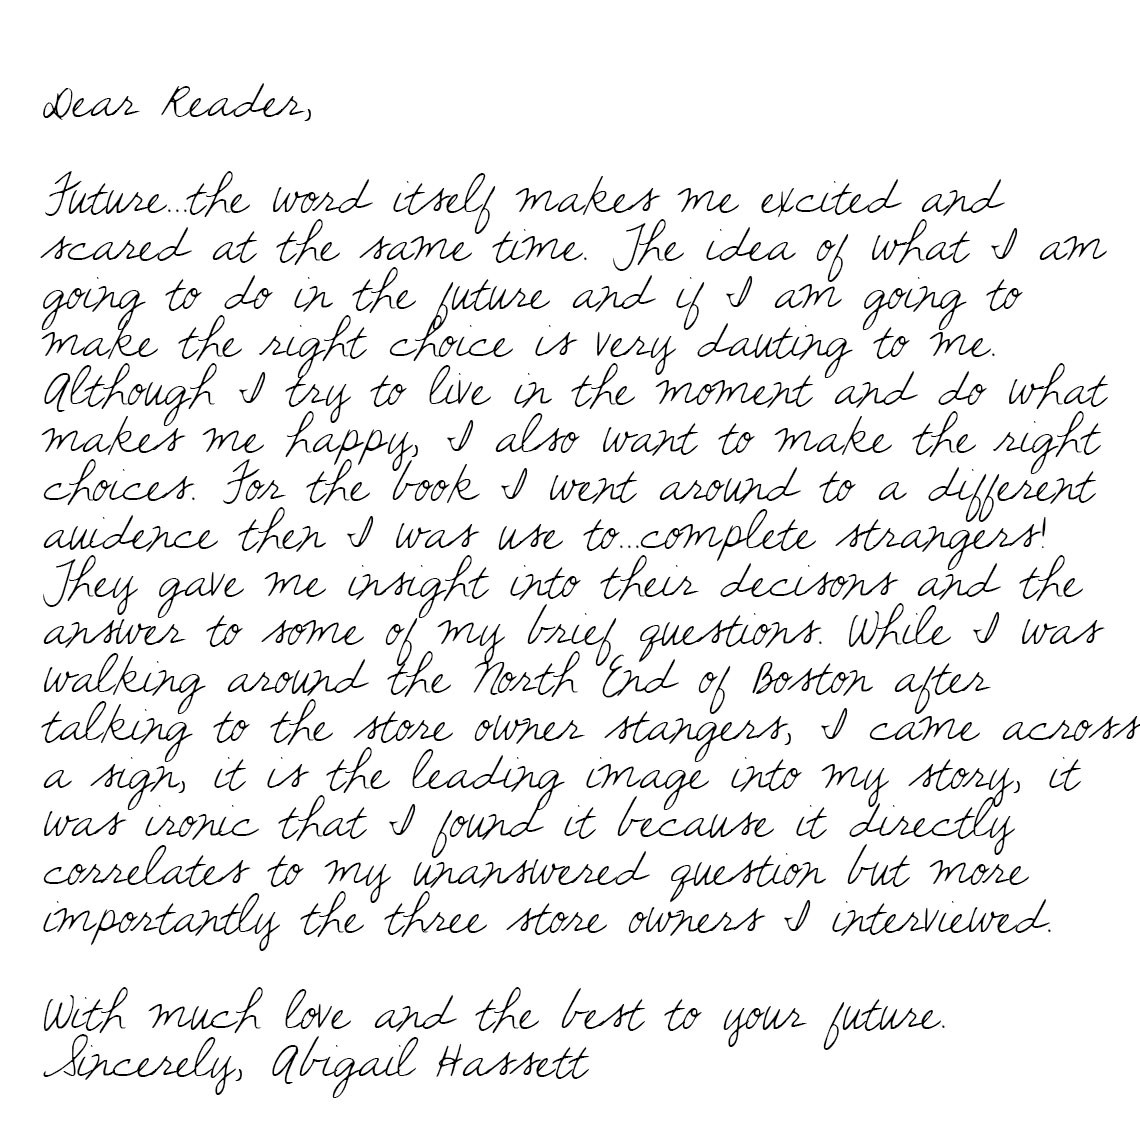 Dear Reader,
Future...the word itself makes me excited and
scared at the same time. The idea of what I am
going to do in the future and if I am going to
make the right choice is very dauting to me.
Although I try to live in the moment and do what
makes me happy, I also want to make the right
choices. For the book I went around to a different
auidence then I was use to...complete strangers!
They gave me insight into their decisons and the
answer to some of my brief questions. While I was
walking around the North End of Boston after
talking to the store owner stangers, I came across
a sign, it is the leading image into my story, it
was ironic that I found it because it directly
correlates to my unanswered question but more
importantly the three store owners I interviewed.
With much love and the best to your future.
Sincerely, Abigail Hassett